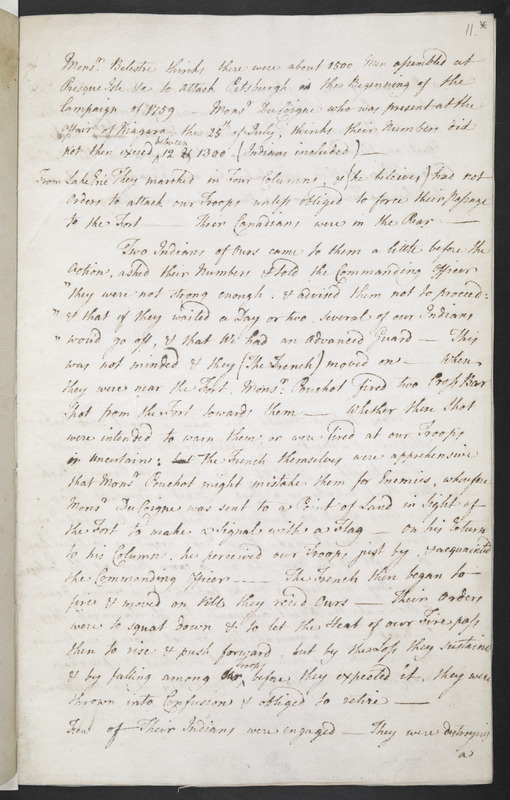 11. *
Mons.r Belestre thinks there were about 1500 Men assembled at
Presque Isle &c to attack Pitsburgh in the Beginning of the
Campaign of 1759 — Mons.r DuCoigne who was present at the
affair of Niagara the 25th of July, thinks their Numbers did
not then exceed between 12 & 1300 (Indians included) —
From Lake Erie They marched in Four Columns, & (he believes) had not
Orders to attack our Troops unless obliged to force their Passage
to the Fort — Their Canadians were in the Rear —
Two Indians of Ours came to them a little before the
Action, asked their Numbers & told the Commanding Officer
"they were not strong enough, & advised them not to proceed:
" & that if they waited a Day or two, several of our Indians
" would go off, & that We had an advanced Guard — This
was not minded & they (The French) moved on — When
they were near the Fort, Mons.r Pouchot fired two Cross Bar
Shot from the Fort towards them — Whether these Shot
were intended to warn them, or were fired at our Troops
is uncertain: the French themselves were apprehensive
that Mons.r Pouchot might mistake them for Enemies, wherefore
Mons.r DuCoigne was sent to a Point of Land in Sight of
the Fort to make a Signal with a Flag — on his Return
to his Column, he perceived our Troops just by, & acquainted
the Commanding Officer — The French then began to
fire & moved on till they rec.ed Ours — Their Orders
were to squat down & to let the Heat of our Fire pass
then to rise & push forward, but by the Loss they Sustained
& by falling among our Troops before they expected it, they were
thrown into Confusion & obliged to retire —
Few of Their Indians were engaged — They were destroying
a